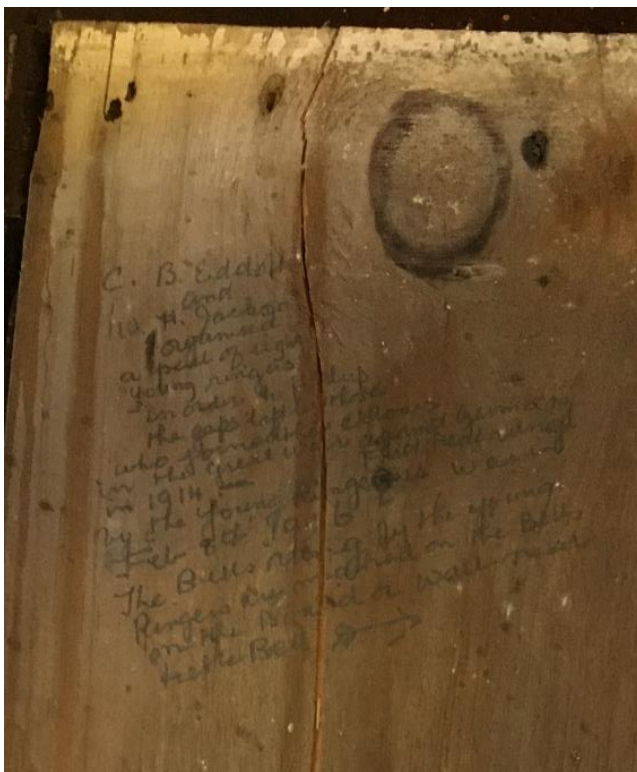 C. B. Eddolls
and
H. Jackson
organised
a peal of eight
young ringers
in order to fill up
the gaps left by those
who joined the colours
in the great war against Germany
in 1914. First peal rung
by the Young Ringers was
Feb 8th 191
The Bells rung by the young
Ringers are marked on the Bells
on the Board or Wall near
the Bell